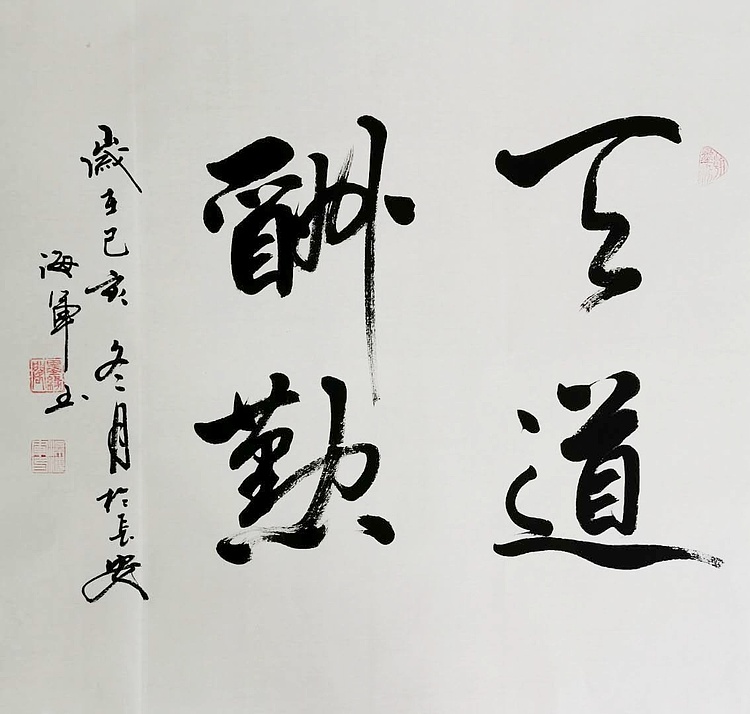 天道
酬勤
歲在己亥冬月於長安
海軍書